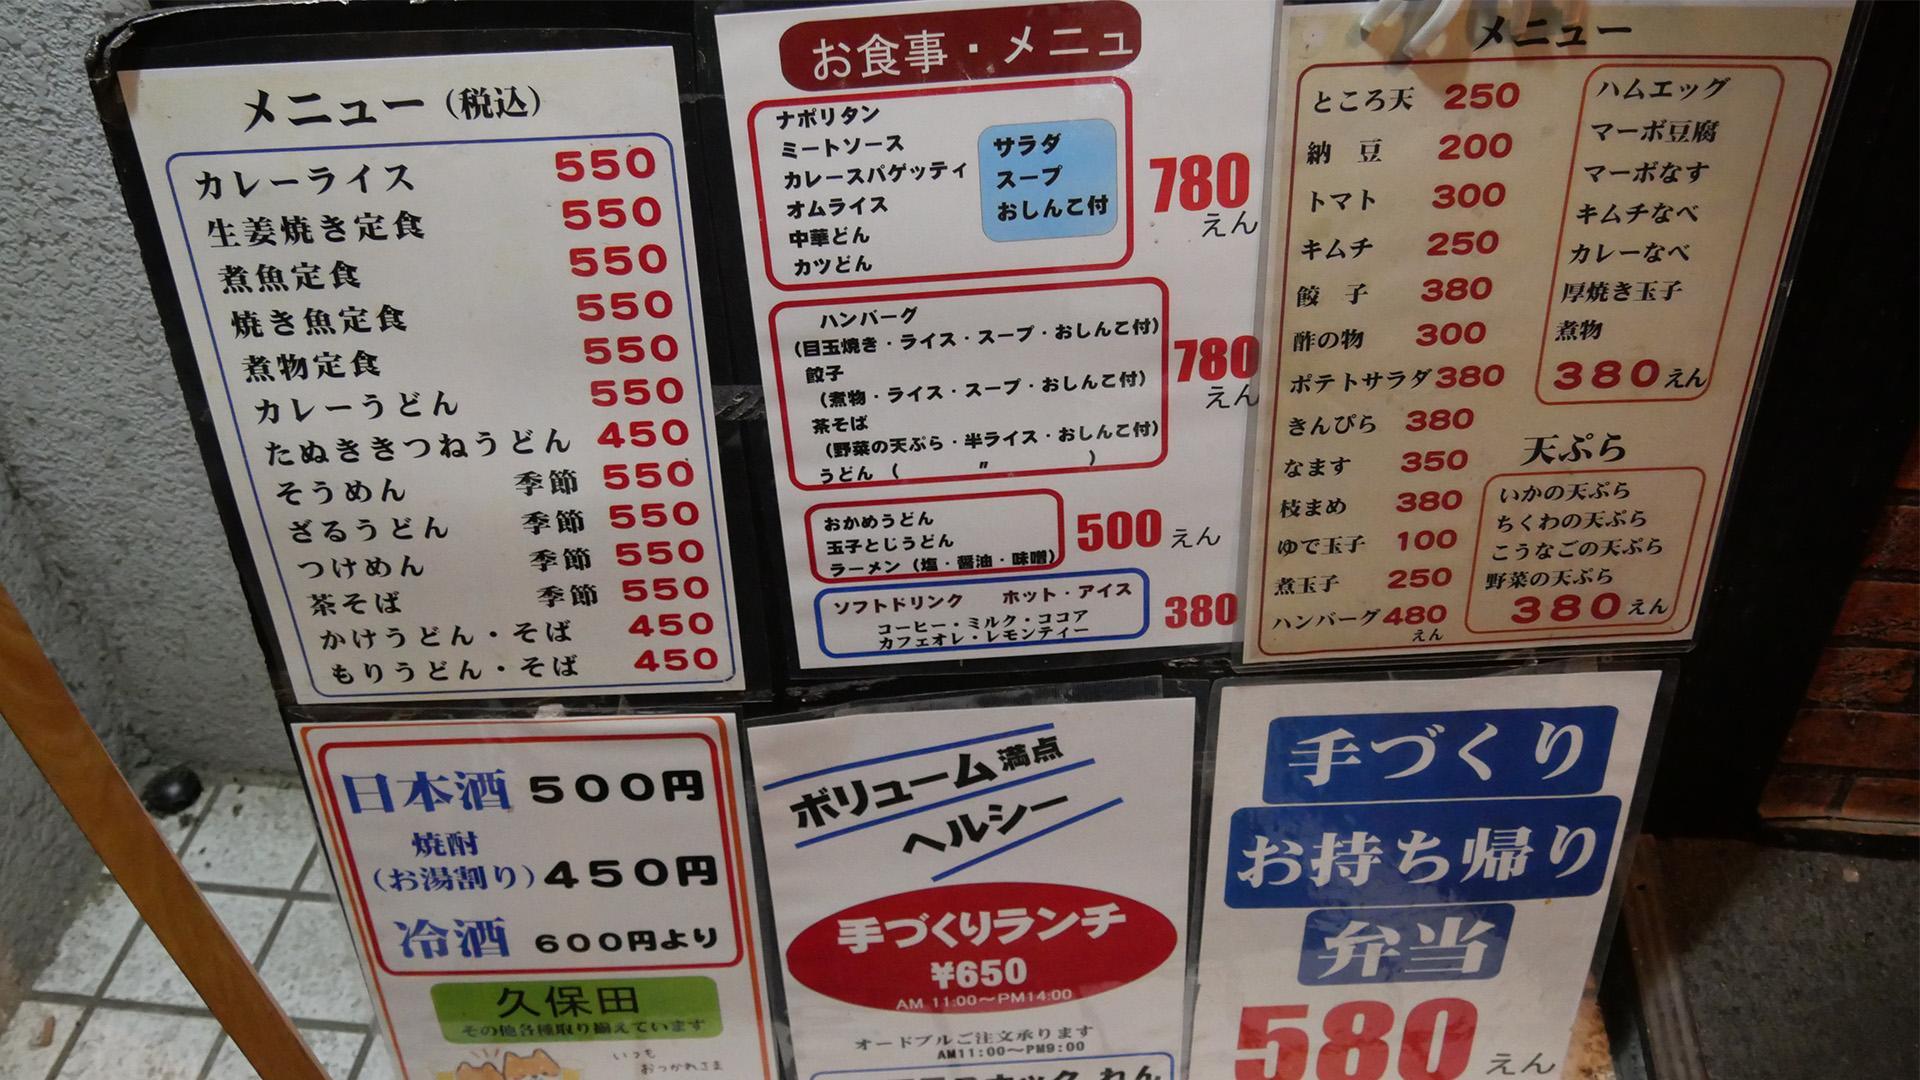 メニュー（税込）
カレーライス 550
生姜焼き定食 550
煮魚定食 550
焼き魚定食 550
煮物定食 550
カレーうどん 550
たぬききつねうどん 450
そうめん 季節 550
ざるうどん 季節 550
つけめん 季節 550
茶そば 季節 550
かけうどん・そば 450
もりうどん・そば 450
お食事・メニュ
ナポリタン
ミートソース
カレースパゲッティ
オムライス
中華どん
カツどん
サラダ
スープ
おしんこ付
780
えん
ハンバーグ
（目玉焼き・ライス・スープ・おしんこ付）
餃子
（煮物・ライス・スープ・おしんこ付）
茶そば
（野菜の天ぷら・半ライス・おしんこ付）
うどん（ 〃 ）
780
えん
おかめうどん
玉子とじうどん
ラーメン（塩・醤油・味噌）
500えん
ソフトドリンク ホット・アイス
コーヒー・ミルク・ココア
カフェオレ・レモンティー
380
メニュー
ところ天 250
納 豆 200
トマト 300
キムチ 250
餃 子 380
酢の物 300
ポテトサラダ 380
きんぴら 380
なます 350
枝まめ 380
ゆで玉子 100
煮玉子 250
ハンバーグ 480
えん
ハムエッグ
マーボ豆腐
マーボなす
キムチなべ
カレーなべ
厚焼き玉子
煮物
380えん
天ぷら
いかの天ぷら
ちくわの天ぷら
こうなごの天ぷら
野菜の天ぷら
380えん
日本酒 500円
焼酎
（お湯割り）450円
冷酒 600円より
久保田
その他各種取り揃えています
いつも
おつかれさま
ボリューム満点
ヘルシー
手づくりランチ
¥650
AM 11:00～PM14:00
オードブルご注文承ります
AM11:00～PM9:00
手づくり
お持ち帰り
弁当
580えん